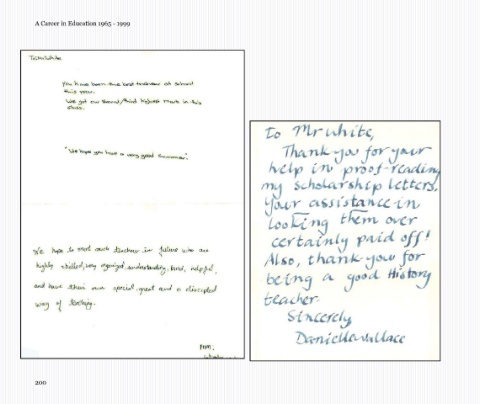 A Career in Education 1965 - 1999
You have been the best teacher at school
this year.
We got our second/third highest mark in this
class.
"We hope you have a very good Summer."
We hope to meet such teachers in future who are
highly skilled, very organized, understanding, kind, helpful,
and have their own special, great and a discipled
way of teaching.
From,
To Mr white,
Thank you for your
help in proof-reading
my scholarship letters.
Your assistance in
looking them over
certainly paid off!
Also, thank you for
being a good History
teacher.
Sincerely,
Danielle Wallace
200